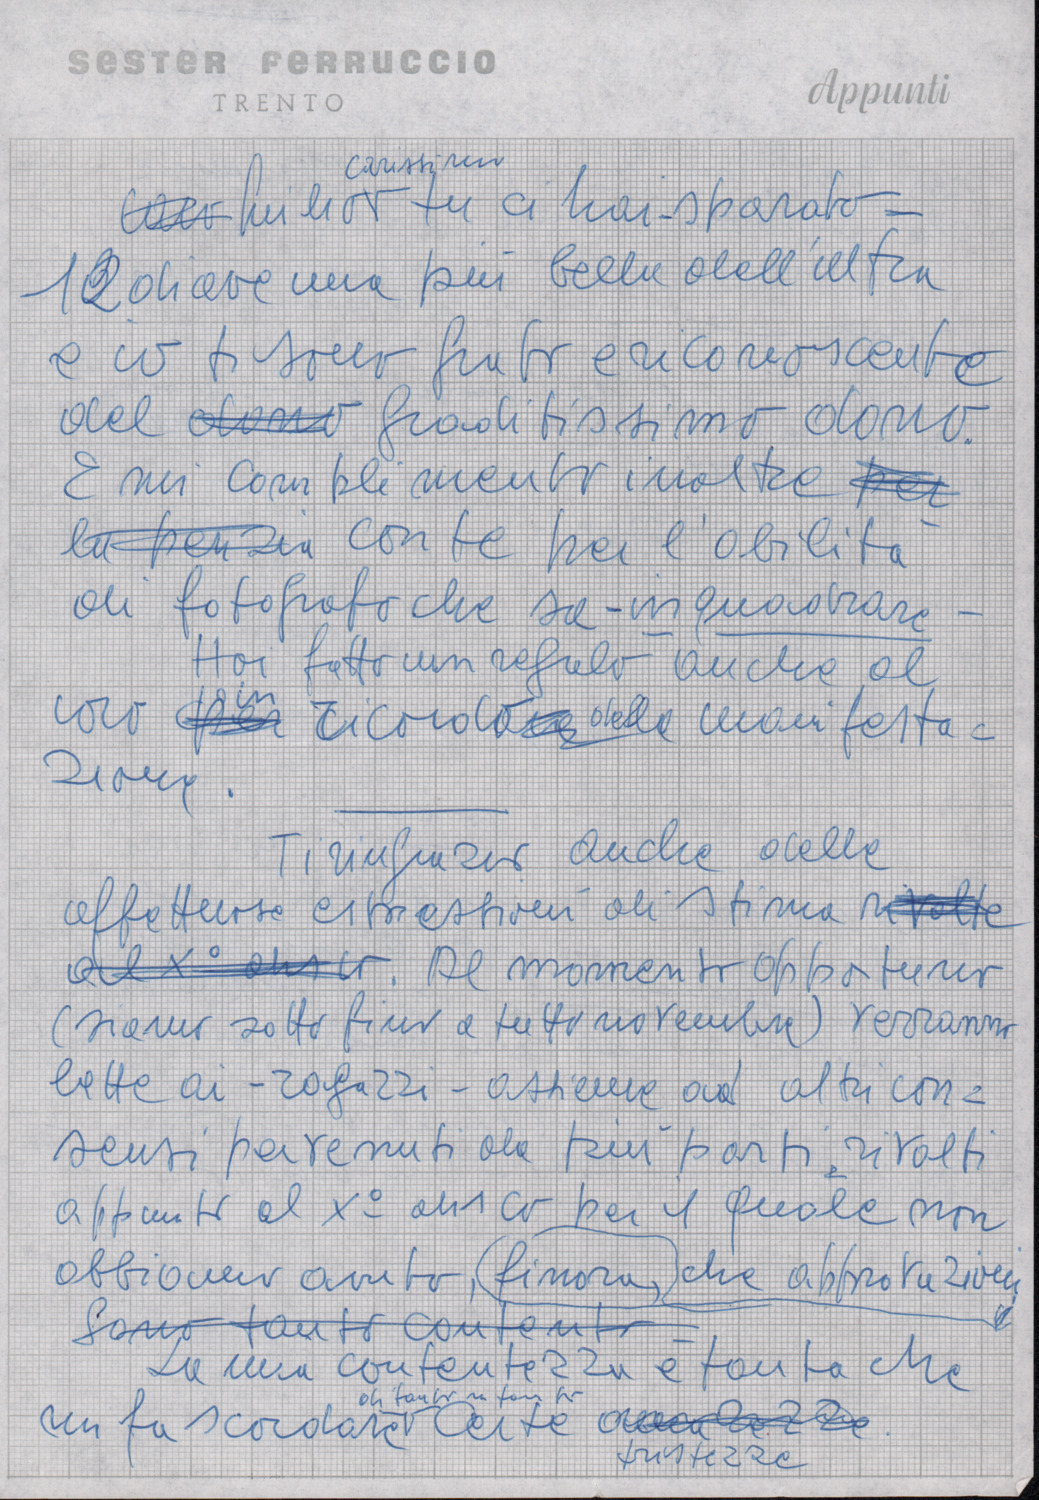 SESTER FERRUCCIO
TRENTO
Appunti
carissimo
caro tu ci hai sparato -
12 diave una più bella dell'altra
e io ti sono grato e riconoscente
del dono graditissimo dono.
E mi complimento inoltre per
la penzia con te per l'abilità
di fotografo che sa inquadrare -
Hai fatto un regalo anche al
coro per in ricordo della manifesta=
zione.
Ti ringrazio anche delle
affettuose espressioni di stima rivolte
al X° disco. Al momento opportuno
(siamo sotto fino a tutto novembre) verranno
lette ai - ragazzi - assieme ad altri con=
sensi pervenuti da più parti, rivolti
appunto al X° disco per il quale non
abbiamo avuto, (finora,) che approvazioni
Sono tanto contento
La mia contentezza è tanta che
di tanto in tanto
mi fa scordare certe
tristezze